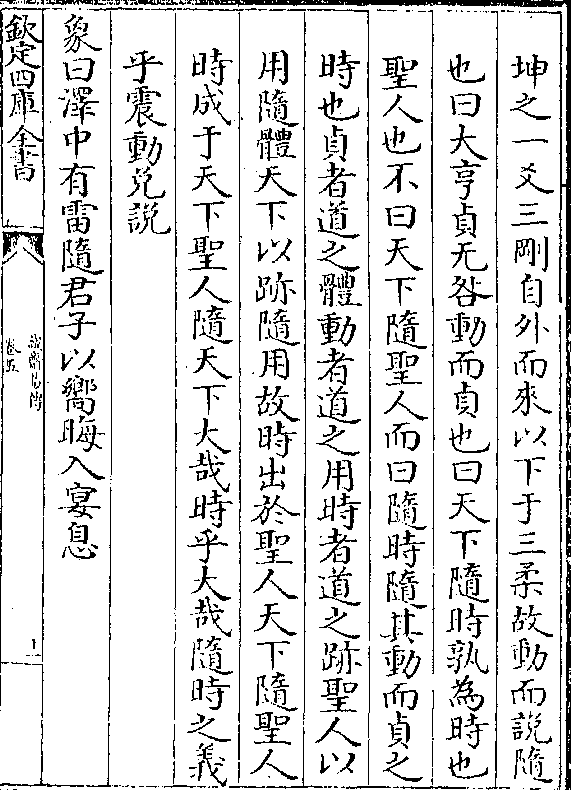 坤之一爻三剛自外而來以下于三柔故動而說隨
也曰大亨貞无咎動而貞也曰天下隨時孰為時也
聖人也不曰天下隨聖人而曰隨時隨其動而貞之
時也貞者道之體動者道之用時者道之跡聖人以
用隨體天下以跡隨用故時出於聖人天下隨聖人
時成于天下聖人隨天下大哉時乎大哉隨時之義
乎震動兌説
象曰澤中有雷隨君子以嚮晦入宴息
欽定四庫全書
誠齋易傳
卷五